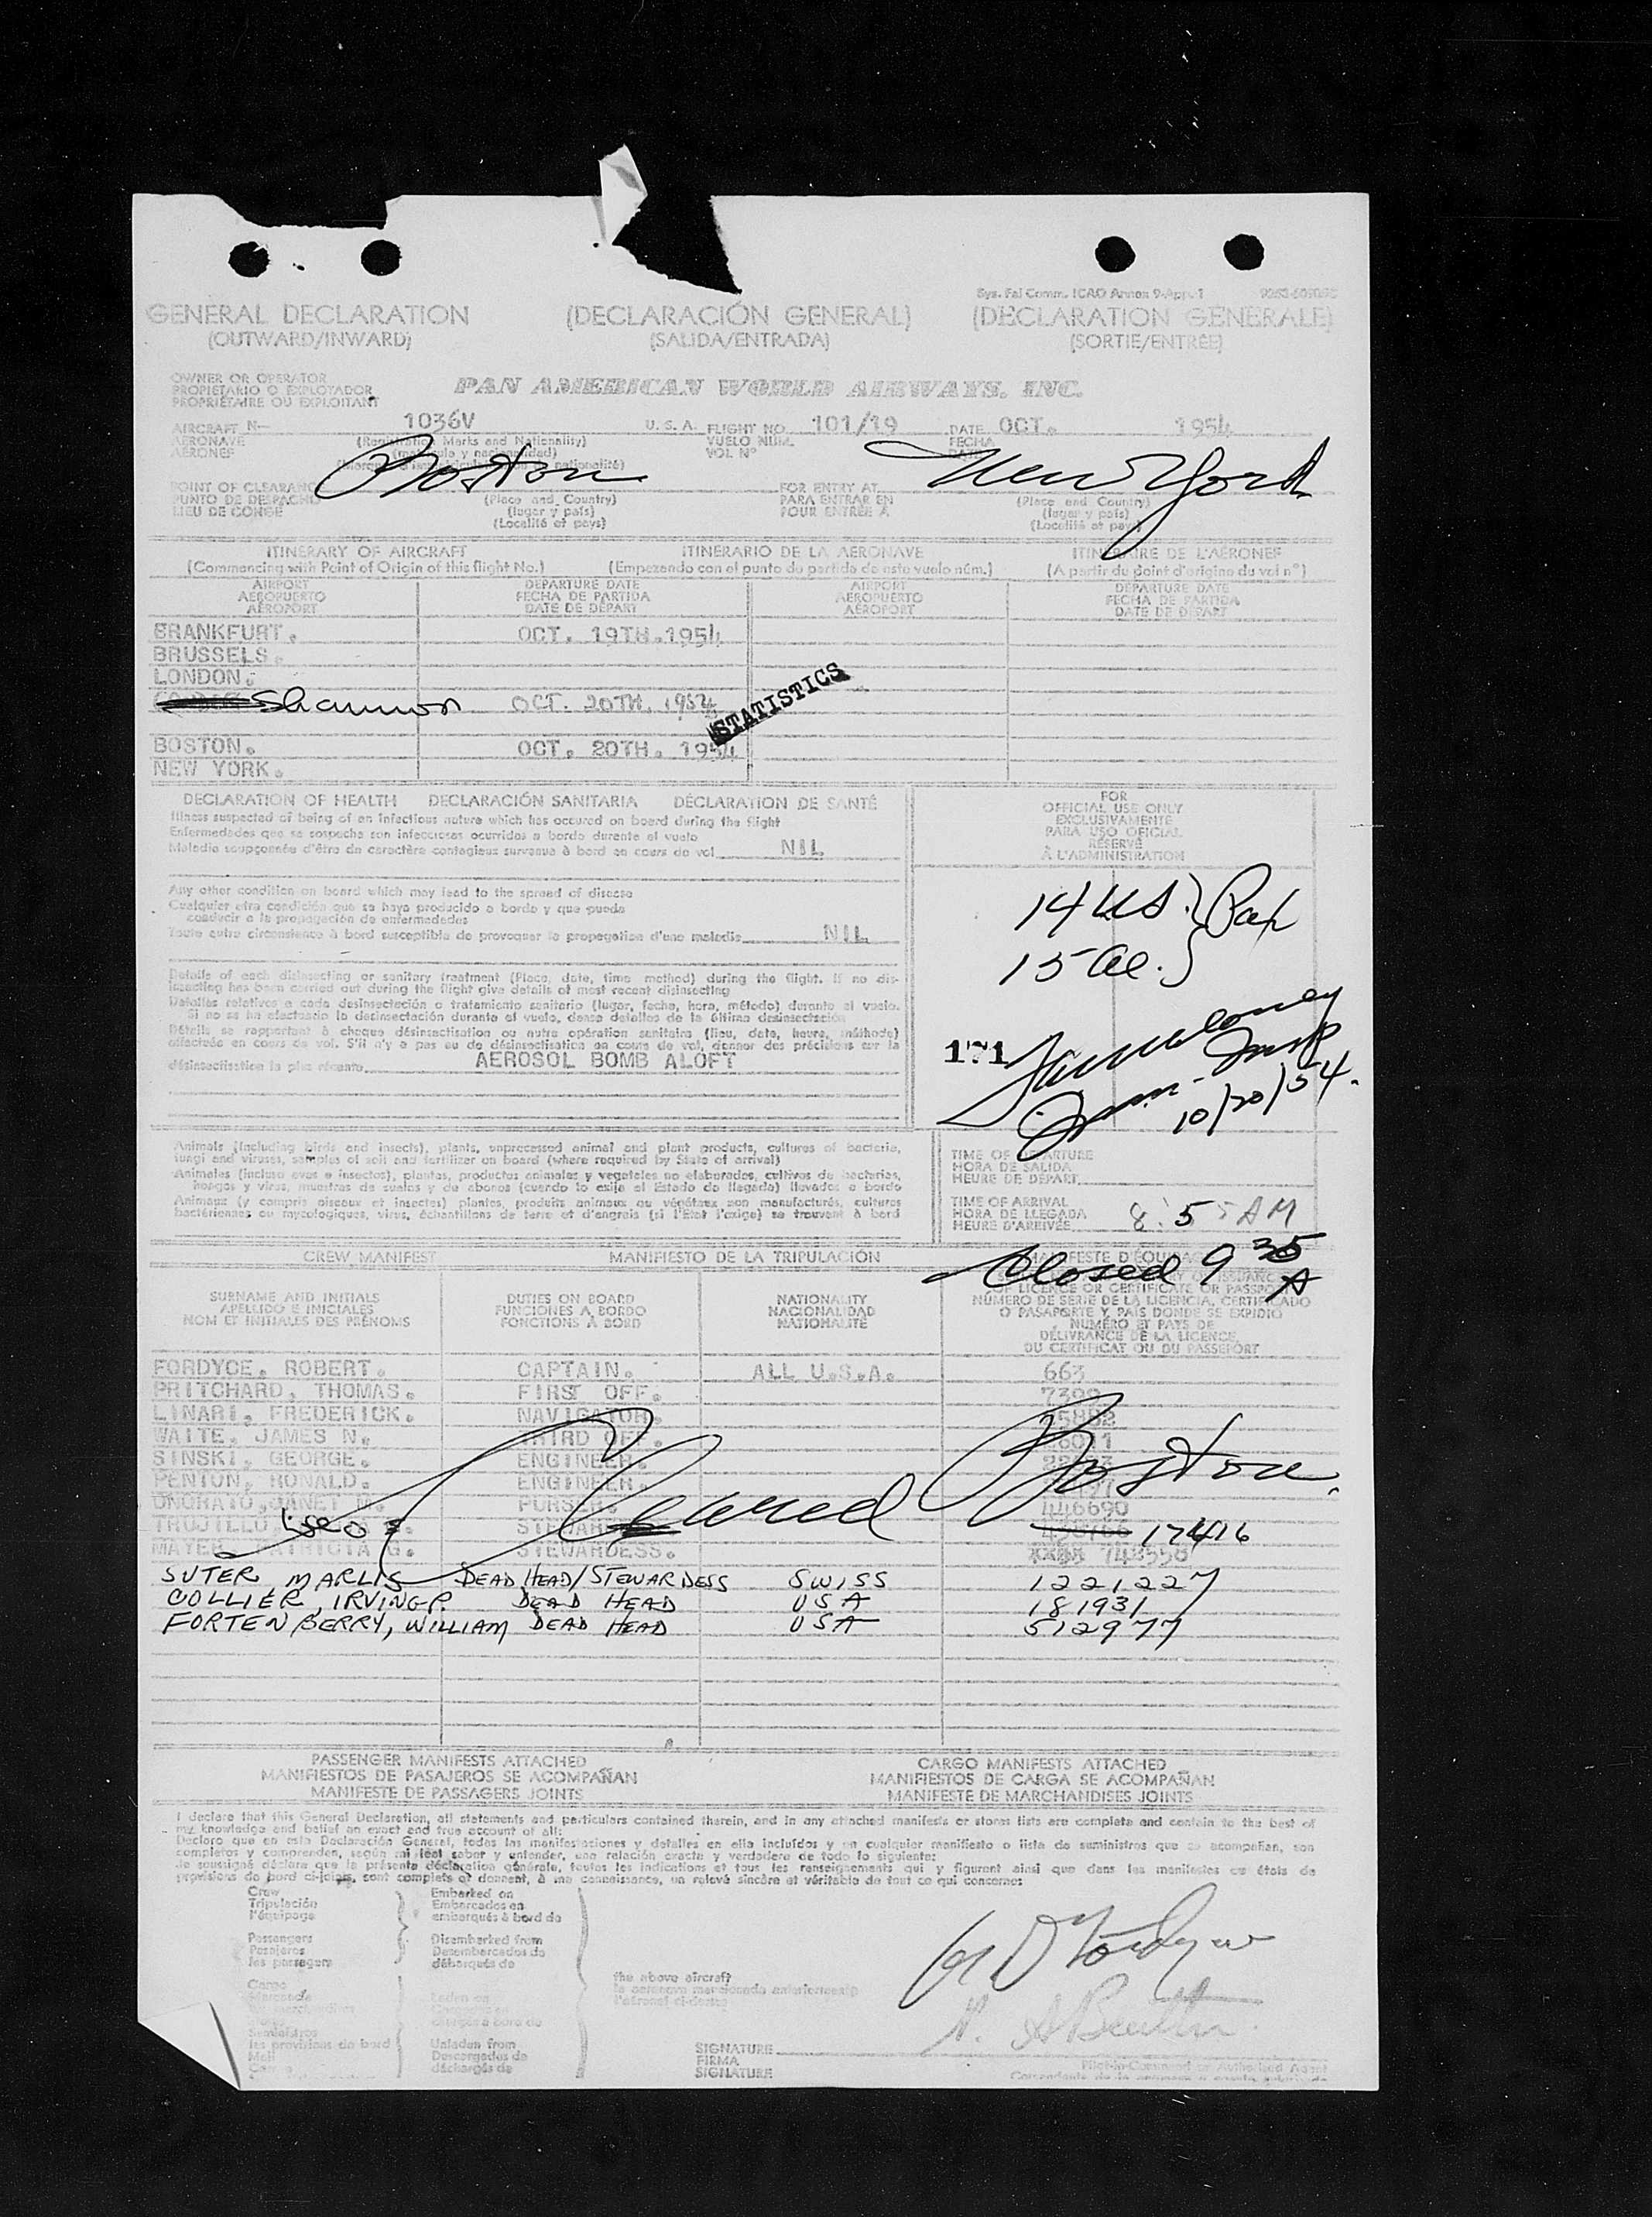 Sys. Fal Comm. ICAO Annex 9-App. 1
GENERAL DECLARATION (DECLARACIÓN GENERAL) (DECLARATION GENERALE)
(OUTWARD/INWARD) (SALIDA/ENTRADA) (SORTIE/ENTREE)
OWNER OR OPERATOR
PROPIETARIO O EXPLOTADOR
PROPRIÉTAIRE OU EXPLOITANT
PAN AMERICAN WORLD AIRWAYS, INC.
AIRCRAFT N— 1036V U. S. A. FLIGHT NO. 101/19 DATE OCT. 1954
AERONAVE (Registration Marks and Nationality) VUELO NUM. FECHA
AÉRONEF VOL Nº DATE
Boston New York
POINT OF CLEARANCE (Place and Country) FOR ENTRY AT (Place and Country)
PUNTO DE DESPACHO (lugar y país) PARA ENTRAR EN (lugar y país)
LIEU DE CONGE (Localité et pays) POUR ENTRÉE À (Localité et pays)
ITINERARY OF AIRCRAFT ITINERARIO DE LA AERONAVE ITINERAIRE DE L'AÉRONEF
(Commencing with Point of Origin of this flight No.) (Empezando con el punto de partida de este vuelo núm.) (A partir du point d'origine du vol nº)
AIRPORT DEPARTURE DATE AIRPORT DEPARTURE DATE
AEROPUERTO FECHA DE PARTIDA AEROPUERTO FECHA DE PARTIDA
AÉROPORT DATE DE DÉPART AÉROPORT DATE DE DÉPART
BRANKFURT. OCT. 19TH.1954
BRUSSELS.
LONDON.
Shannon OCT. 20TH. 1954
STATISTICS
BOSTON. OCT. 20TH. 1954
NEW YORK.
DECLARATION OF HEALTH DECLARACIÓN SANITARIA DÉCLARATION DE SANTÉ
Illness suspected of being of an infectious nature which has occured on board during the flight
Enfermedades que se sospecha son infecciosas ocurridas a bordo durante el vuelo
Maladie soupçonnée d'être de caractère contagieux survenue à bord au cours de vol NIL
FOR
OFFICIAL USE ONLY
EXCLUSIVAMENTE
PARA USO OFICIAL
RESERVÉ
À L'ADMINISTRATION
Any other condition on board which may lead to the spread of disease
Cualquier otra condición que se haya producido a bordo y que pueda
conducir a la propagación de enfermedades
Toute autre circonstance à bord susceptible de provoquer la propagation d'une maladie NIL
14 US. } Pax
15 Al.
Details of each disinsecting or sanitary treatment (Place, date, time method) during the flight. If no dis-
insecting has been carried out during the flight give details of most recent disinsecting
Detalles relativos a cada desinsectación o tratamiento sanitario (lugar, fecha, hora, método) durante el vuelo.
Si no se ha efectuado la desinsectación durante el vuelo, dense detalles de la última desinsectación
Détails se rapportant à chaque désinsectisation ou autre opération sanitaire (lieu, date, heure, méthode)
effectuée en cours de vol. S'il n'y a pas eu de désinsectisation en cours de vol, donner des précisions sur la
désinsectisation la plus récente AEROSOL BOMB ALOFT
171
10/20/54.
Animals (including birds and insects), plants, unprocessed animal and plant products, cultures of bacteria,
fungi and viruses, samples of soil and fertilizer on board (where required by State of arrival)
Animales (incluso aves e insectos), plantas, productos animales y vegetales no elaborados, cultivos de bacterias,
hongos y virus, muestras de suelos y de abonos (cuando lo exija el Estado de llegada) llevados a bordo
Animaux (y compris oiseaux et insectes) plantes, produits animaux ou végétaux non manufacturés, cultures
bactériennes ou mycologiques, virus, échantillons de terre et d'engrais (si l'Etat l'exige) se trouvant à bord
TIME OF DEPARTURE
HORA DE SALIDA
HEURE DE DÉPART
TIME OF ARRIVAL
HORA DE LLEGADA
HEURE D'ARRIVÉE 8:55 AM
Closed 9 35 A
CREW MANIFEST MANIFIESTO DE LA TRIPULACIÓN MANIFESTE D'ÉQUIPAGE
SURNAME AND INITIALS DUTIES ON BOARD NATIONALITY OF LICENCE OR CERTIFICATE OR PASSPORT
APELLIDO E INICIALES FUNCIONES A BORDO NACIONALIDAD NÚMERO DE SERIE DE LA LICENCIA, CERTIFICADO
NOM ET INITIALES DES PRÉNOMS FONCTIONS À BORD NATIONALITÉ O PASAPORTE Y PAIS DONDE SE EXPIDIO
NUMÉRO ET PAYS DE
DÉLIVRANCE DE LA LICENCE,
DU CERTIFICAT OU DU PASSEPORT
FORDYCE. ROBERT. CAPTAIN. ALL U.S.A. 663
PRITCHARD. THOMAS. FIRST OFF.
LINARI. FREDERICK. NAVIGATOR.
WAITE. JAMES N. THIRD OFF.
SINSKI. GEORGE. ENGINEER.
PENTON. RONALD. ENGINEER.
ONORATO.JANET PURSER. 446690
TRUJILLO STEWARDESS 17416
MAYER. PATRICIA G. STEWARDESS. 748550
Cleared Boston.
SUTER MARLIS DEAD HEAD/STEWARDESS SWISS 1221227
COLLIER, IRVING P. DEAD HEAD USA 181931
FORTENBERRY, WILLIAM DEAD HEAD USA 512977
PASSENGER MANIFESTS ATTACHED CARGO MANIFESTS ATTACHED
MANIFIESTOS DE PASAJEROS SE ACOMPAÑAN MANIFIESTOS DE CARGA SE ACOMPAÑAN
MANIFESTE DE PASSAGERS JOINTS MANIFESTE DE MARCHANDISES JOINTS
I declare that this General Declaration, all statements and particulars contained therein, and in any attached manifests or stores lists are complete and contain to the best of
my knowledge and belief an exact and true account of all:
Declaro que en esta Declaración General, todas las manifestaciones y detalles en ella incluidos y en cualquier manifiesto o lista de suministros que se acompañan, son
completos y comprenden, según mi leal saber y entender, una relación exacta y verdadera de todo lo siguiente:
Je soussigné déclare que la présente déclaration générale, toutes les indications et tous les renseignements qui y figurent ainsi que dans les manifestes ou états de
provisions de bord ci-joints, sont complets et donnent, à ma connaissance, un relevé sincère et véritable de tout ce qui concerne:
Crew Embarked on
Tripulación Embarcados en
l'équipage embarqués à bord de
Passengers Disembarked from
Pasajeros Desembarcados de
les passagers débarqués de
Cargo the above aircraft
les provisions de bord Unladen from
Descargados de
déchargés de
SIGNATURE
FIRMA
SIGNATURE
Pilot-in-Command or Authorized Agent